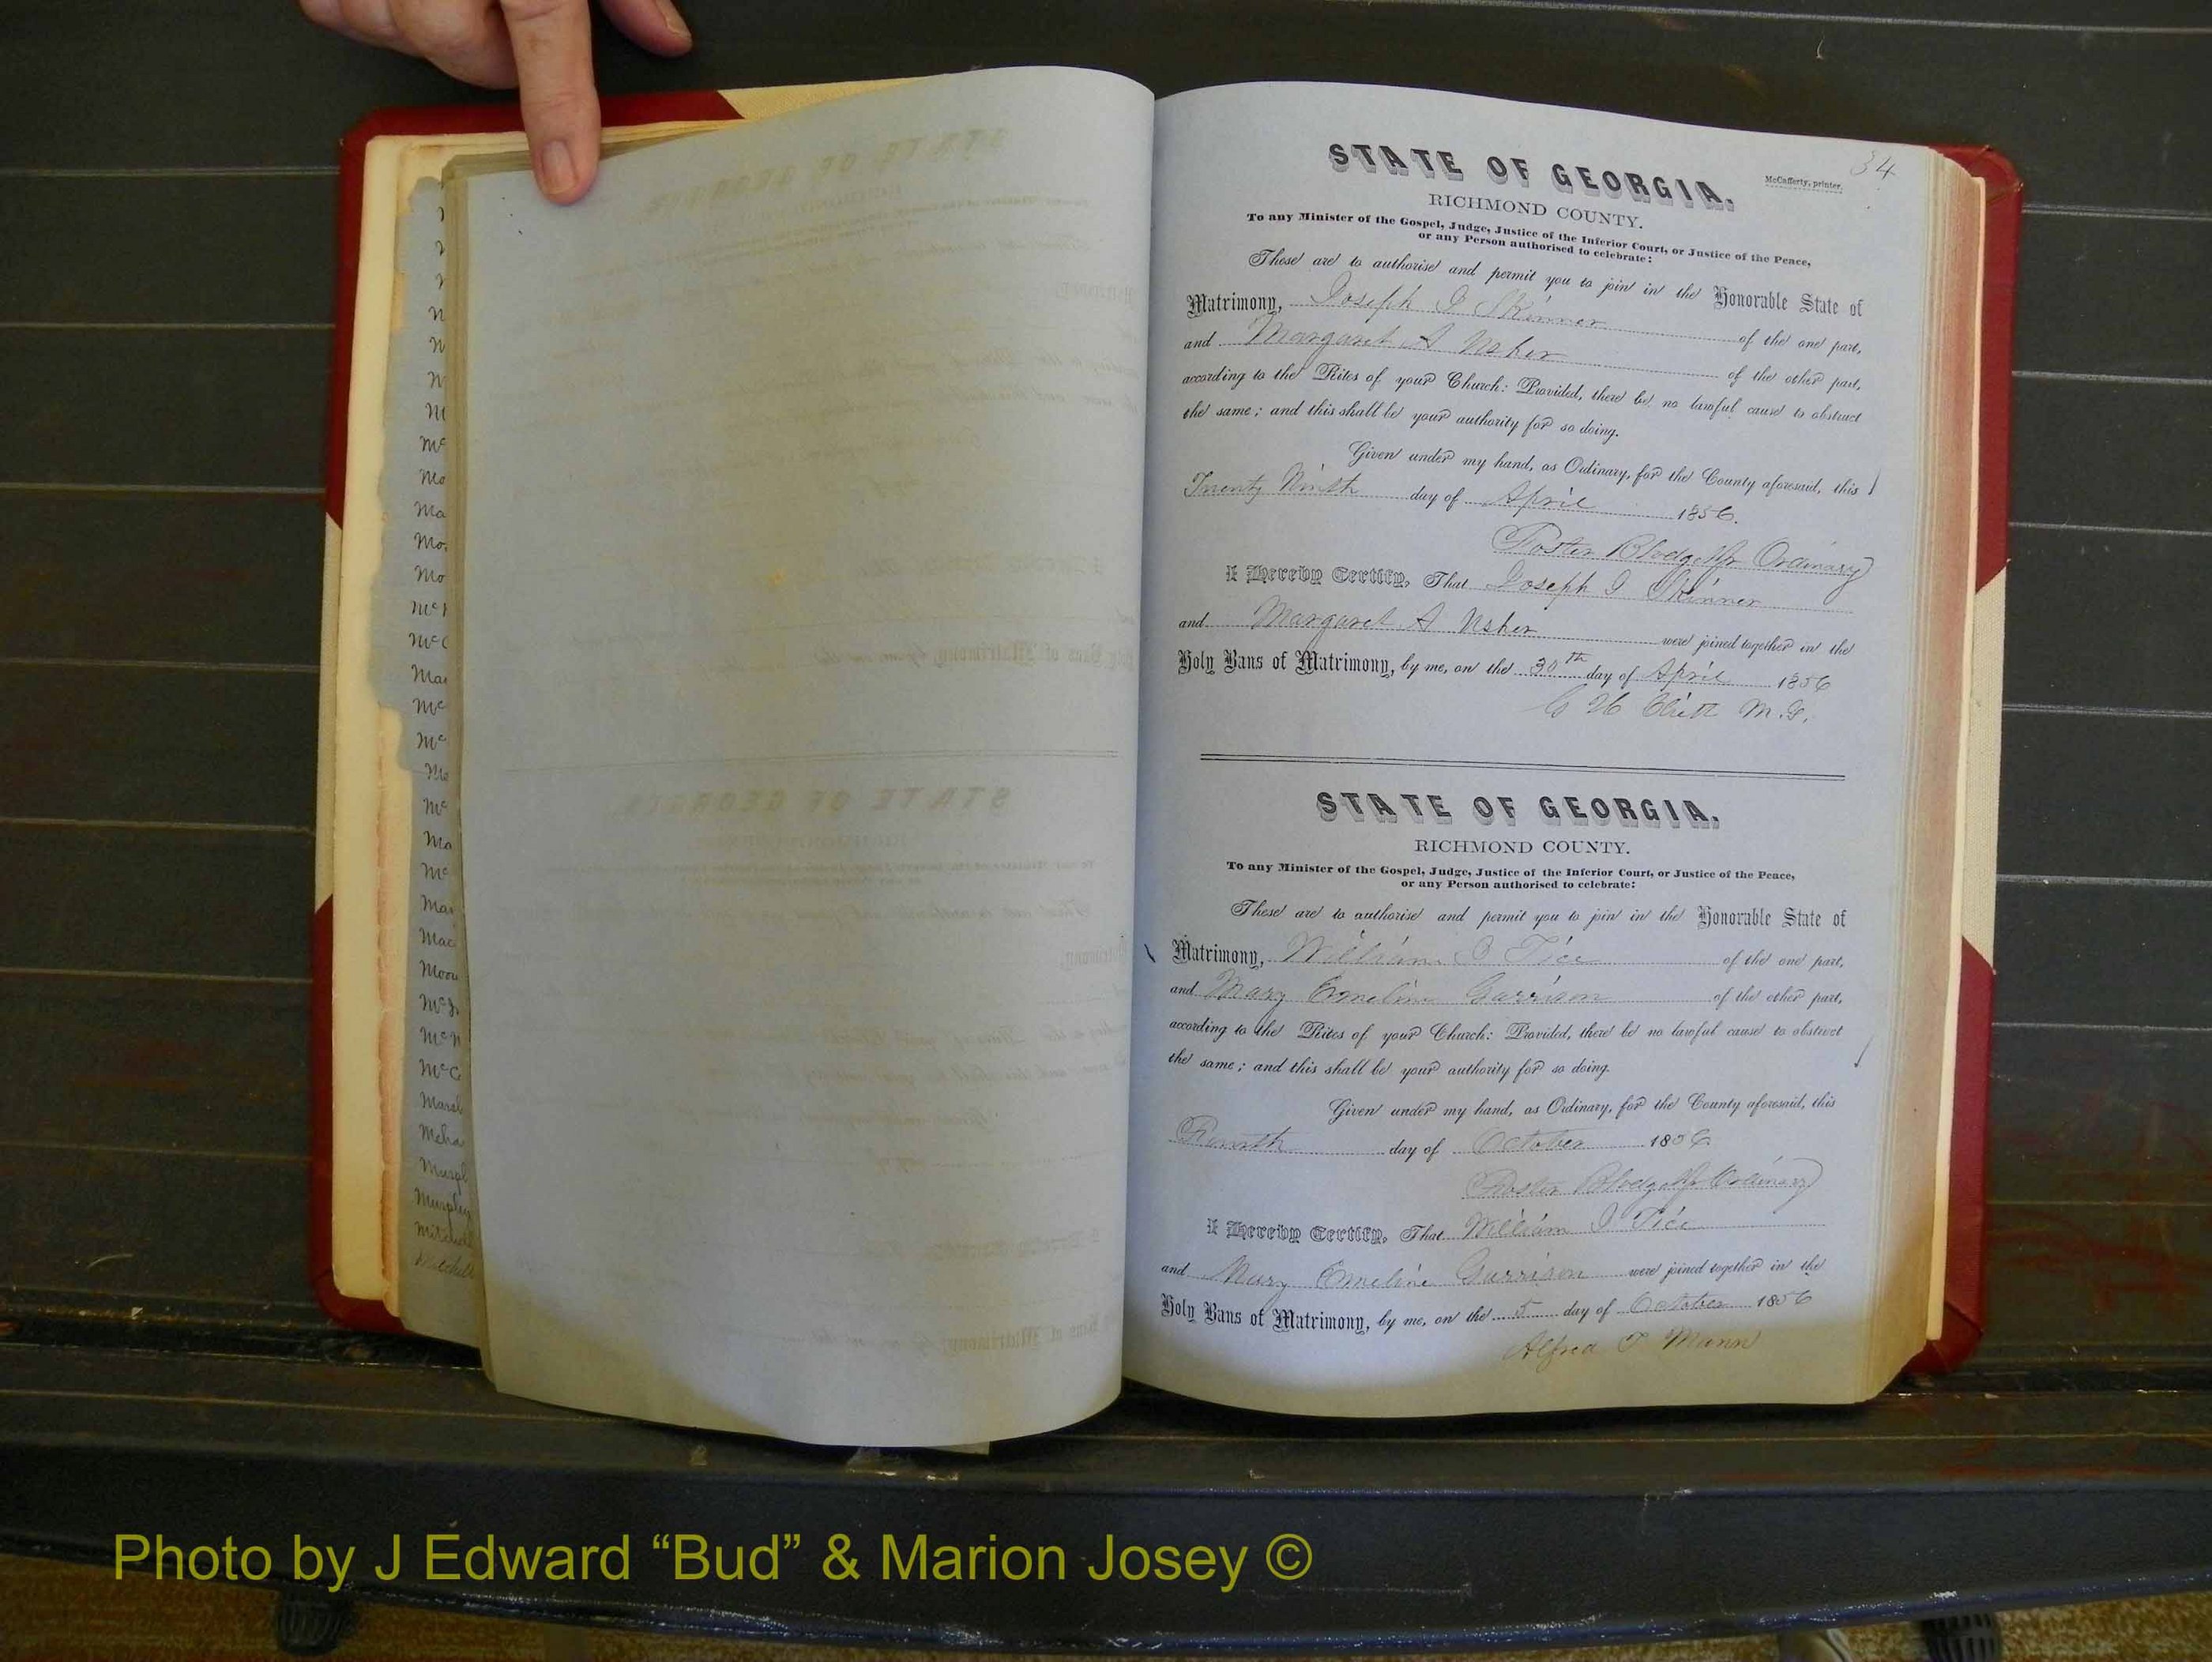 34
McCafferty, printer.
STATE OF GEORGIA.
RICHMOND COUNTY.
To any Minister of the Gospel, Judge, Justice of the Inferior Court, or Justice of the Peace,
or any Person authorised to celebrate:
These are to authorise and permit you to join in the Honorable State of
Matrimony, Joseph J Skinner of the one part,
and Margaret A Usher of the other part,
according to the Rites of your Church: Provided, there be no lawful cause to obstruct
the same; and this shall be your authority for so doing.
Given under my hand, as Ordinary, for the County aforesaid, this
Twenty Ninth day of April 1856.
Foster Blodget Jr Ordinary
I Hereby Certify, That Joseph J Skinner
and Margaret A Usher were joined together in the
Holy Bans of Matrimony, by me, on the 30th day of April 1856
M.G.
STATE OF GEORGIA.
RICHMOND COUNTY.
To any Minister of the Gospel, Judge, Justice of the Inferior Court, or Justice of the Peace,
or any Person authorised to celebrate:
These are to authorise and permit you to join in the Honorable State of
Matrimony, William J Tice of the one part,
and Mary Emeline Garrison of the other part,
according to the Rites of your Church: Provided, there be no lawful cause to obstruct
the same; and this shall be your authority for so doing.
Given under my hand, as Ordinary, for the County aforesaid, this
Fourth day of October 1856
Foster Blodget Jr Ordinary
I Hereby Certify, That William J Tice
and Mary Emeline Garrison were joined together in the
Holy Bans of Matrimony, by me, on the 5 day of October 1856
Alfred T Mann
Photo by J Edward “Bud” & Marion Josey ©